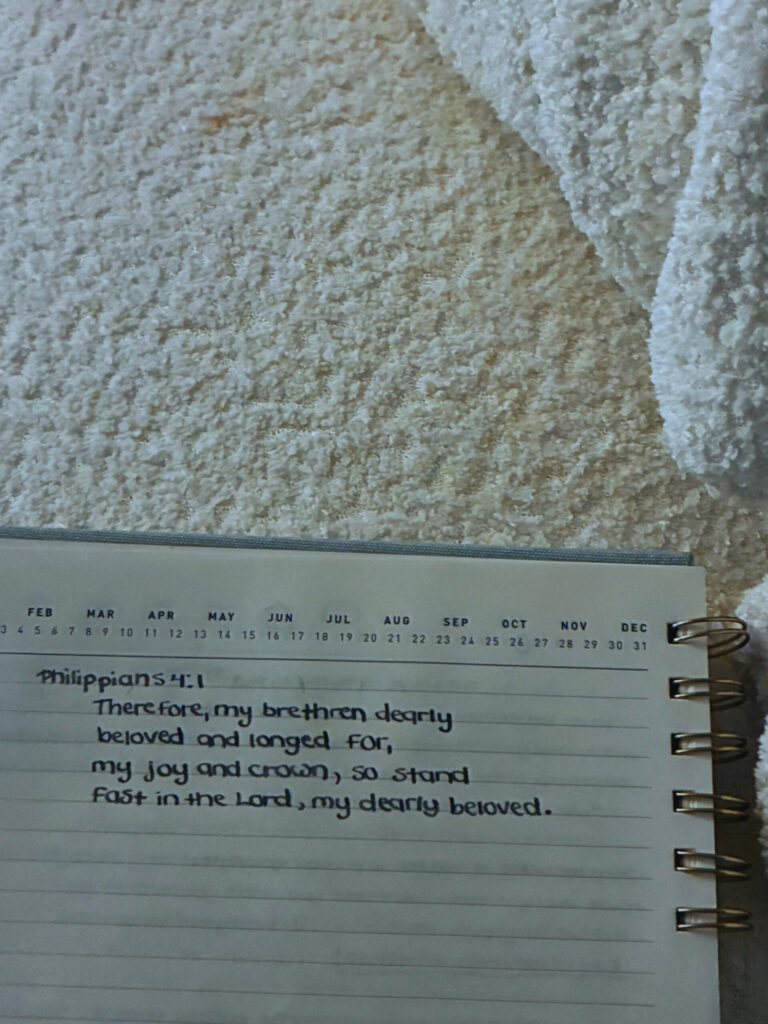 FEB MAR APR MAY JUN JUL AUG SEP OCT NOV DEC
3 4 5 6 7 8 9 10 11 12 13 14 15 16 17 18 19 20 21 22 23 24 25 26 27 28 29 30 31
Philippians 4:1
Therefore, my brethren dearly
beloved and longed for,
my joy and crown, so stand
fast in the Lord, my dearly beloved.